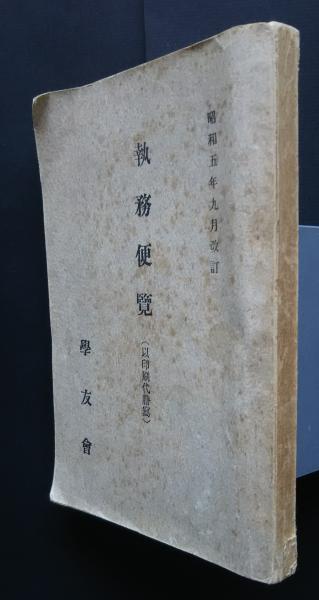 昭和五年九月改訂
執務便覽
(以印刷代謄寫)
學友會